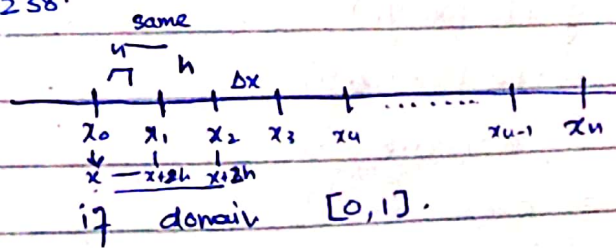 238.
same
h h Δx
x₀ x₁ x₂ x₃ x₄ ....... xₙ₋₁ xₙ
x x+2h x+2h
if domain [0,1].